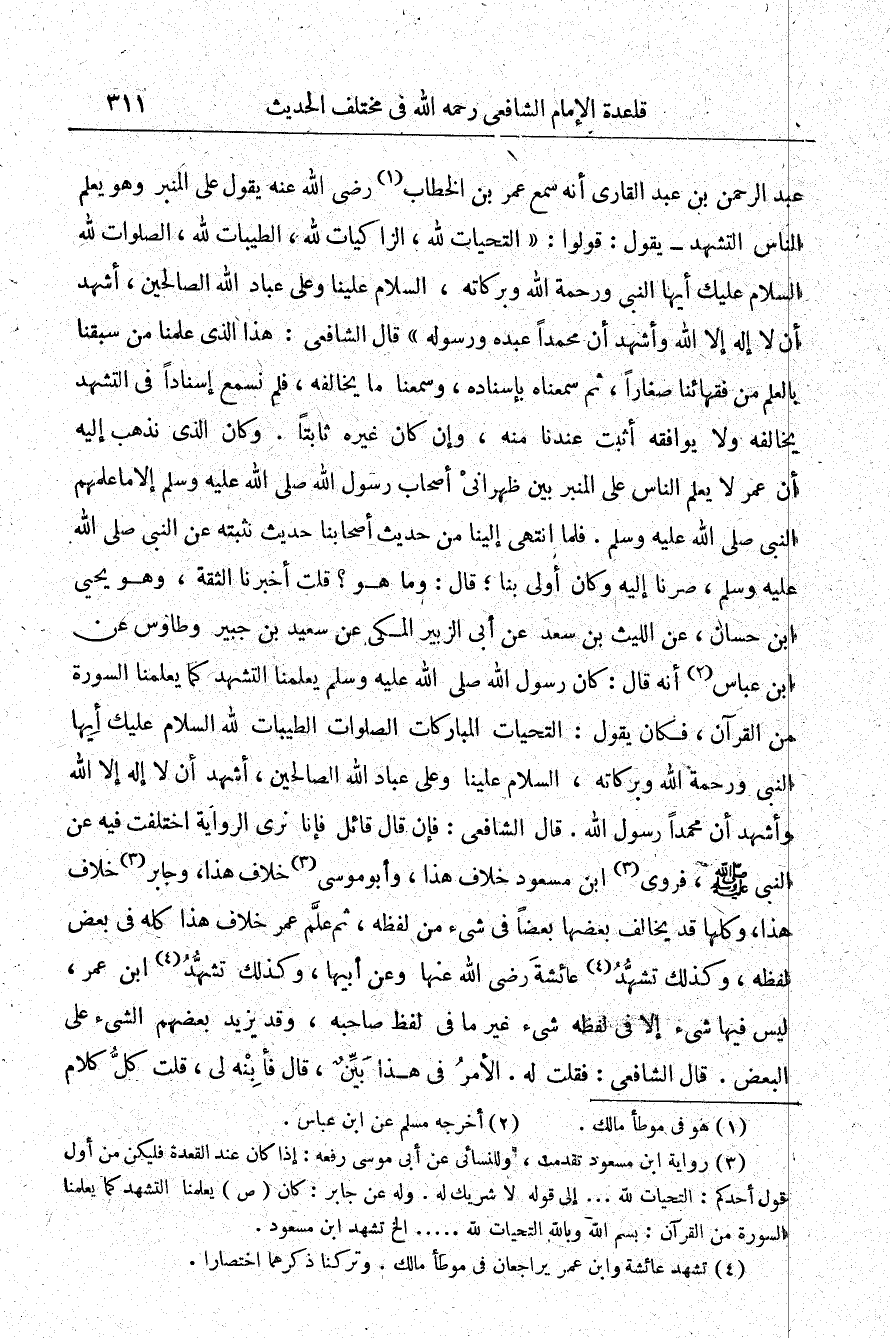 قاعدة الإمام الشافعى رحمه الله فى مختلف الحديث ٣١١
عبد الرحمن بن عبد القارى أنه سمع عمر بن الخطاب(١) رضى الله عنه يقول على المنبر وهو يعلم
الناس التشهد ــ يقول : قولوا : « التحيات لله ، الزاكيات لله ، الطيبات لله ، الصلوات لله
السلام عليك أيها النبى ورحمة الله وبركاته ، السلام علينا وعلى عباد الله الصالحين ، أشهد
أن لا إله إلا الله وأشهد أن محمداً عبده ورسوله » قال الشافعى : هذا الذى علمنا من سبقنا
بالعلم من فقهائنا صغاراً ، ثم سمعناه بإسناده ، وسمعنا ما يخالفه ، فلم نسمع إسناداً فى التشهد
يخالفه ولا يوافقه أثبت عندنا منه ، وإن كان غيره ثابتاً . وكان الذى نذهب إليه
أن عمر لا يعلم الناس على المنبر بين ظهرانىْ أصحاب رسول الله صلى الله عليه وسلم إلاماعلمهم
النبى صلى الله عليه وسلم . فلما انتهى إلينا من حديث أصحابنا حديث نثبته عن النبى صلى الله
عليه وسلم ، صرنا إليه وكان أولى بنا ؛ قال : وما هــو ؟ قلت أخبرنا الثقة ، وهــو يحيى
ابن حسان ، عن الليث بن سعد عن أبى الزبير المــكى عن سعيد بن جبير وطاوس عن
ابن عباس(٢) أنه قال : كان رسول الله صلى الله عليه وسلم يعلمنا التشهد كما يعلمنا السورة
من القرآن ، فــكان يقول : التحيات المباركات الصلوات الطيبات لله السلام عليك أيها
النبى ورحمة الله وبركاته ، السلام علينا وعلى عباد الله الصالحين ، أشهد أن لا إله إلا الله
وأشهد أن محمداً رسول الله . قال الشافعى : فإن قال قائل فإنا نرى الرواية اختلفت فيه عن
النبى ﷺ ، فروى(٣) ابن مسعود خلاف هذا ، وأبوموسى(٣) خلاف هذا، وجابر(٣) خلاف
هذا، وكلها قد يخالف بعضها بعضاً فى شىء من لفظه ، ثم علَّم عمر خلاف هذا كله فى بعض
لفظه ، وكذلك تشهُّدُ(٤) عائشةَ رضى الله عنها وعن أبيها ، وكذلك تشهُّدُ(٤) ابن عمر ،
ليس فيها شىء إلا فى لفظه شىء غير ما فى لفظ صاحبه ، وقد يزيد بعضهم الشىء على
البعض . قال الشافعى : فقلت له . الأمرُ فى هــذا بَيِّنٌ ، قال فأَبِنْه لى ، قلت كلُّ كلام
(١) هو فى موطأ مالك . (٢) أخرجه مسلم عن ابن عباس .
(٣) رواية ابن مسعود تقدمت ، وللنسائى عن أبى موسى رفعه : إذا كان عند القعدة فليكن من أول
قول أحدكم : التحيات لله ... إلى قوله لا شريك له . وله عن جابر : كان ( ص ) يعلمنا التشهد كما يعلمنا
السورة من القرآن : بسم الله وبالله التحيات لله ..... الخ تشهد ابن مسعود .
(٤) تشهد عائشة وابن عمر يراجعان فى موطأ مالك . وتركنا ذكرهما اختصارا .